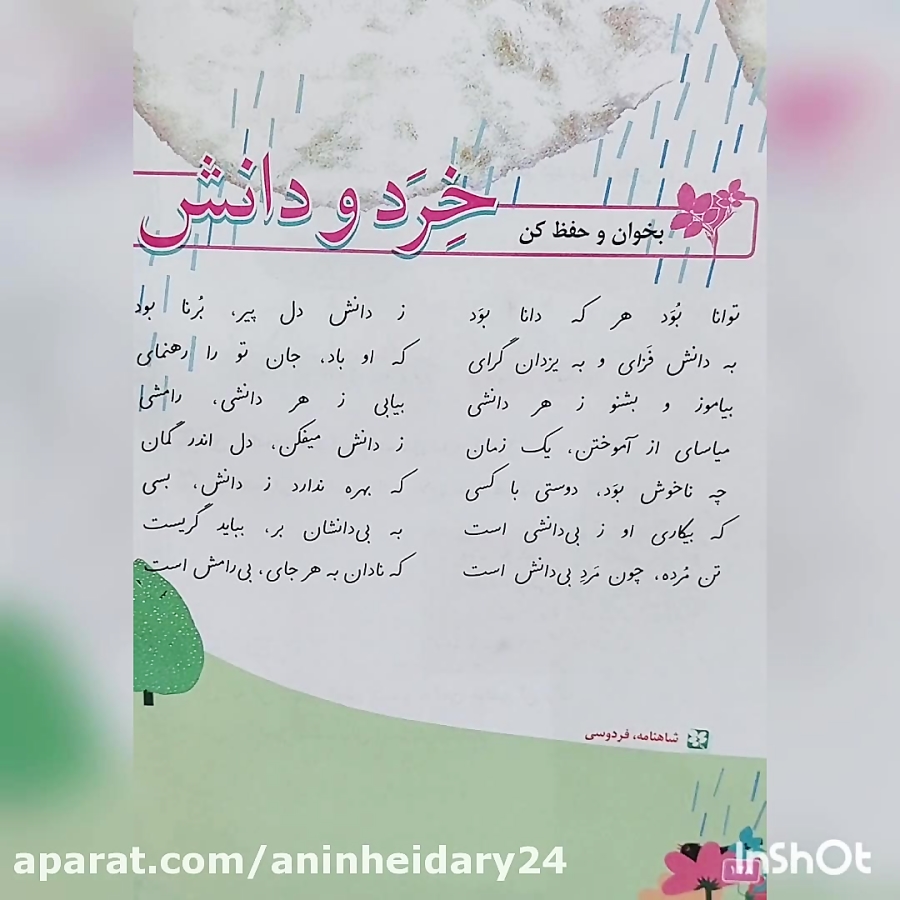 خِرَد و دانش
بخوان و حفظ کن
توانا بُوَد هر که دانا بوَد ز دانش دل پیر، بُرنا بود
به دانش فَزای و به یزدان گرای که او باد، جان تو را رهنمای
بیاموز و بشنو ز هر دانشی بیابی ز هر دانشی، رامشی
میاسای از آموختن، یک زمان ز دانش میفکن، دل اندر گمان
چه ناخوش بوَد، دوستی با کسی که بهره ندارد ز دانش، بسی
که بیکاری او ز بی‌دانشی است به بی‌دانشان بر، بباید گریست
تن مُرده، چون مَردِ بی‌دانش است که نادان به هر جای، بی‌رامش است
شاهنامه، فردوسی
aparat.com/aninheidary24
InShOt